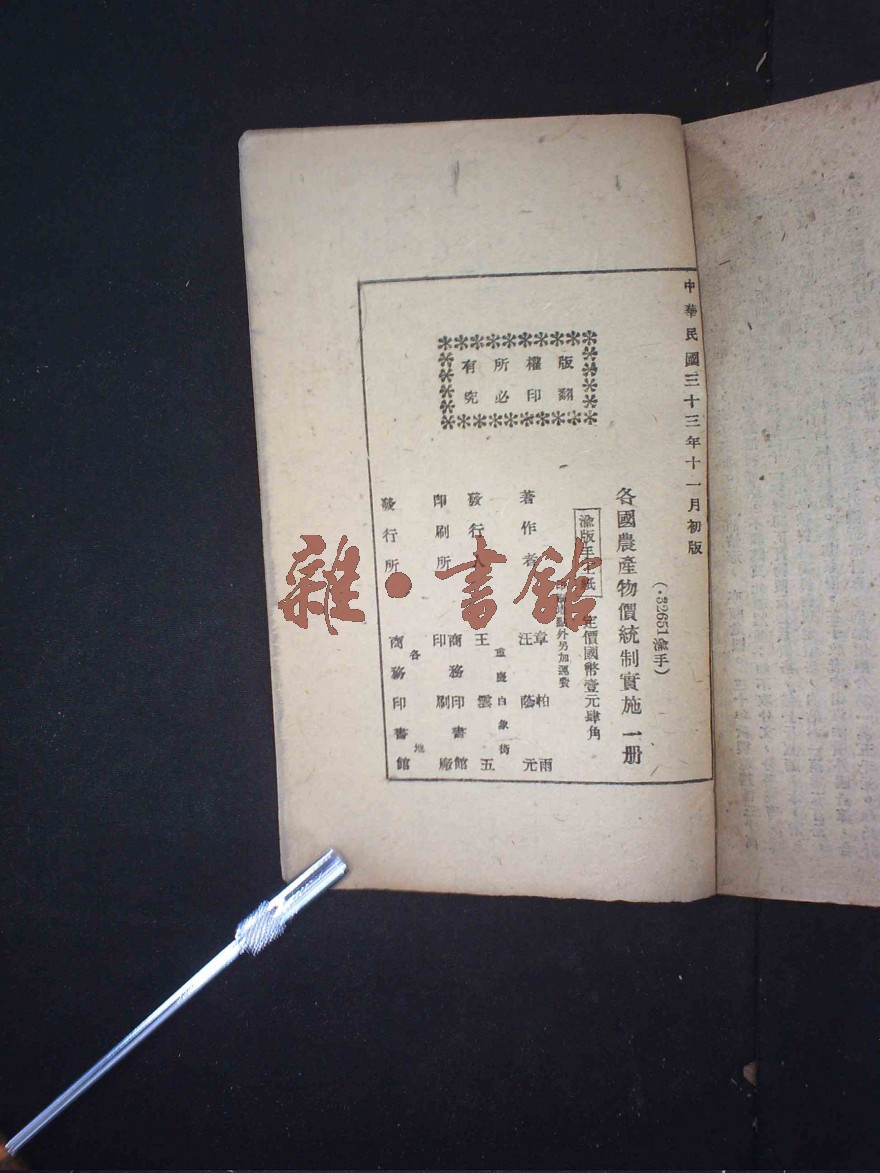 中華民國三十三年十一月初版
(·32651渝手)
各國農產物價統制實施 一册
渝版手工紙 定價國幣壹元肆角
外另加運費
著作者 章柏雨 汪蔭元
重慶白象街
發行人 王雲五
印刷所 商務印書館印刷廠
發行所 各地 商務印書館
版權所有
翻印必究
雜·書館